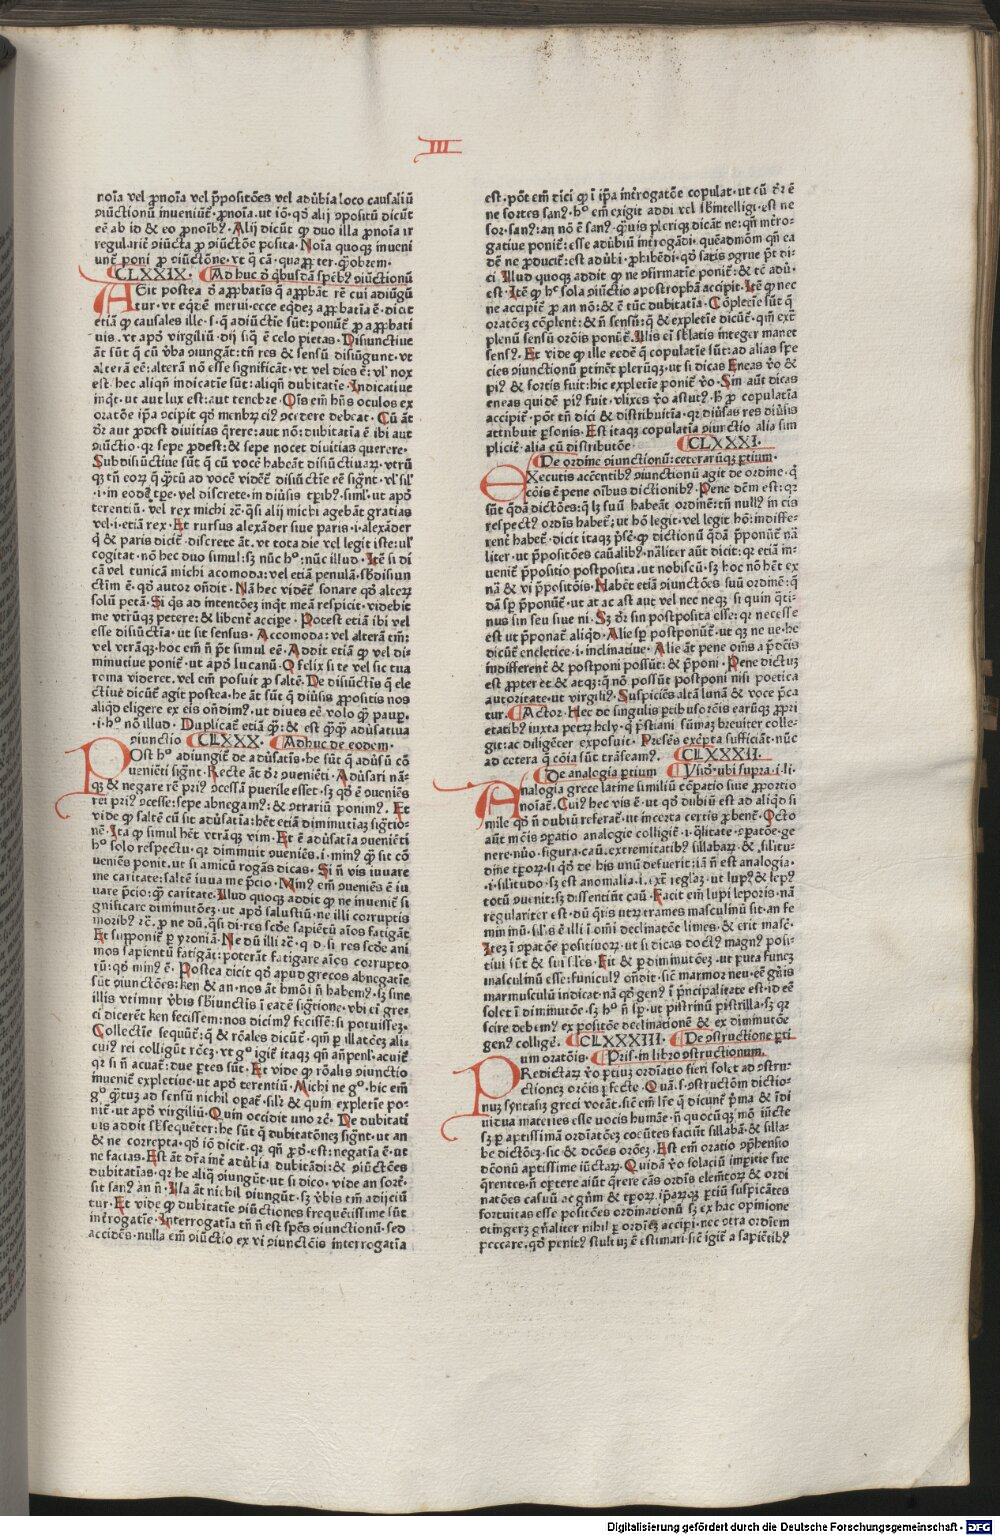 III
noīa vel ꝓnoīa vel p̄positōes vel adūbia loco causaliū
ↄiūctionū inveniūt᷒. ꝓnoīa. ut iō. qd̄ alij ↄpositū dicūt
eē ab id & eo ꝓnoībꝰ. Alij dicūt ꝙ duo illa ꝓnoīa ir
regularit᷒ ↄiūcta ꝓ ↄiūctōne posita. Noīa quoqꝫ inveni
unt᷒ poni ꝓ ↄiūctōne. vt q̄ cā. qua ꝓpter. qm̄obrem.
CLXXIX. Adhuc d̄ qbusdā spēbꝰ ↄiūctionū
ASit postea d̄ aꝓbatīs q̄ aꝓbāt rē cui adiūgū
tur. vt eqdē merui. ecce eqdeꝫ aꝓbatīa ē. dicit
etiā ꝙ causales ille. s. q̄ adiūctīe sūt: ponūt᷒ ꝓ aꝓbati
uis. vt apd̄ virgiliū. dij siq̄ ē celo pietas. Disiunctiue
āt sūt q̄ cū v̄ba ↄiungāt: tn̄ res & sensū disiūgunt. vt
alterā eē: alterā nō esse significāt. vt vel dies ē: vl' nox
est. hec aliqn̄ indicatīe sūt: aliqn̄ dubitatīe. Indicatiue
inqt. ut aut lux est: aut tenebre. Oīs em̄ hn̄s oculos ex
oratōe ip̄a ↄcipit qd̄ menbrꝫ ciꝰ ↄcedere debeat. Cū āt
dr̄ aut ꝓdest divitias q̄rere: aut nō: dubitatīa ē ibi aut
ↄiūctio. qr sepe ꝓdest: & sepe nocet divitias querere.
Subdisiūctiue sūt q̄ cū vocē habeāt disiūctiuaꝝ. vtrū
qꝫ tn̄ eoꝝ q̄ q̄tū ad vocē vident᷒ disiūctīe eē signt᷒. vl' sil'
i. in eodē tꝑe. vel discrete in diūsis tꝑibꝰ. siml'. ut apd̄
terentiū. vel rex michi rē. qsi alij michi agebāt gratias
vel. i. etiā rex. Et rursus alexāder siue paris. i. alexāder
q̄ & paris dicit᷒. discrete āt. vt tota die vel legit iste: ul'
cogitat. nō hec duo simul: sꝫ nūc hᵒ: nūc illud. Itē si di
cā vel tunicā michi acomoda: vel etiā penulā. sb̄disiun
ctīm ē. qd̄ autor on̄dit. Nā hec videt᷒ sonare qd̄ alteꝝ
solū petā. Si qs ad intentōeꝫ inqt meā respicit. videbit
me vtrūqꝫ petere: & libent᷒ accipe. Potest etiā ibi vel
esse disiūctīa. ut sit sensus. Accomoda: vel alterā tm̄:
vel vtrāqꝫ. hoc em̄ n̄ pt̄ simul eē. Addit etiā ꝙ vel di-
minutiue ponit᷒. ut apd̄ lucanū. O felix si te vel sic tua
roma videret. vel em̄ posuit ꝓ saltē. De disiūctīs q̄ ele
ctiuē dicūt᷒ agit postea. he āt sūt q̄ diūsis ꝓpositis nos
aliqd eligere ex eis on̄dimꝰ. ut diues eē volo q̄ pauꝑ.
i. hᵒ nō illud. Duplicat᷒ etiā q̄: & est q̄q̄ adūsatiua
ↄiunctio CLXXX. Adhuc de eodem.
POst hᵒ adiungit᷒ de adūsatīs. he sūt q̄ adūsū cō
venieti signt᷒. Recte āt dr̄ ↄvenieti. Adūsari nā-
qꝫ & negare rē priꝰ ↄcessā puerile esset. sꝫ qd̄ ē ↄveniēs
rei priꝰ ↄcesse: sepe abnegamꝰ: & ↄtrariū ponimꝰ. Et
vide ꝙ saltē cū sit adūsatīa: hēt etiā diminutiaꝫ sigtīo-
nē. Ita ꝙ simul hēt vtrāqꝫ vim. Et ē adūsatīa ↄveniēti
hᵒ solo respectu. qr diminuit ↄveniēs. i. minꝰ q̄ sit cō
ueniēs ponit. ut si amicū rogās dicas. Si n̄ vis iuvare
me caritate: saltē iuva me p̄cio. Minꝰ em̄ ↄveniēs ē iu
vare p̄cio: q̄ caritate. Illud quoqꝫ addit ꝙ ne invenit᷒ si
gnificare diminutōeꝫ. ut apd̄ salustiū. ne illi corruptis
moribꝰ rc̄. ꝓ ne dū. qsi di. res scd̄e sapiētū aīos fatigāt
Et supponit᷒ ꝑ yroniā. Ne dū illi rc̄. q. d. si res scd̄e ani
mos sapientū fatigāt: poterāt fatigare aīos corrupto
rū: qd̄ minꝰ ē. Postea dicit qd̄ apud grecos abnegatīe
sūt ↄiunctōes: ken & an. nos āt hm̄oi n̄ habemꝰ. sꝫ sine
illis vtimur v̄bis sb̄iunctīs i eadē sigtione. vbi ei gre-
ci dicerēt ken fecissem: nos dicimꝰ fecissē: si potuissez.
Collectīe sequūt᷒: q̄ & rōales dicūt᷒. qm̄ ꝑ illatōeꝫ ali-
cuiꝰ rei colligūt rōeꝫ. vt gᵒ igit᷒ itaqꝫ qn̄ an̄penl'. acuit᷒
qr si n̄ acuat᷒: due ꝑtes sūt. Et vide ꝙ rōalis ↄiunctio
invenit᷒ expletiue. ut apd̄ terentiū. Michi ne gᵒ. hic em̄
gᵒ q̄tuꝫ ad sensū nichil oꝑat᷒. sil'r & quin expletīe po-
nit᷒. ut apd̄ virgiliū. Quin occidit uno rc̄. De dubitati
vis addit sb̄sequēter: he sūt q̄ dubitatōneꝫ signt᷒. ut an
& ne correpta. qd̄ iō dicit. qr qn̄ ꝓd. est: negatīa ē. ut
ne facias. Est āt dr̄a int᷒ adūbia dubitādi: & ↄiūctōes
dubitatīas. qr he aliq̄ ↄiungūt. ut si dico. vide an sort᷒
sit sanꝰ an n̄. Illa āt nichil ↄiungūt. sꝫ v̄bis tm̄ adijciū
tur. Et vide ꝙ dubitatīe ↄiūctiones frequētissime sūt
int᷒rogatīe. Interrogatīa tn̄ n̄ est spēs ↄiunctionū. sed
accidēs. nulla em̄ ↄiūctio ex vi ↄiunctōis interrogatīa
est. pōt em̄ dici ꝙ i ip̄a int᷒rogatōe copulat. ut cū dr̄ ē
ne sortes sanꝰ. hᵒ em̄ exigit addi vel sb̄intelligi. est ne
sor. sanꝰ: an nō ē sanꝰ. q̄uis pleriqꝫ dicāt ne: qn̄ int᷒ro-
gatiue ponit᷒: esse adūbiū int᷒rogādi. quēadmōm qn̄ ea
dē ne ꝓducit᷒: est adūbi. ꝓhibēdi. qd̄ satis ↄgrue pt̄ di-
ci. Illud quoqꝫ addit ꝙ ne ↄfirmatīe ponit᷒: & tē adū.
est. Itē ꝙ hᵉ sola ↄiūctio apostropham accipit. Itē ꝙ nec
ne accipit᷒ ꝓ an nō: & ē tūc dubitatīa. Cōpletīe sūt q̄
oratōeꝫ cōplent: & n̄ sensū: q̄ & expletīe dicūt᷒. qm̄ ext᷒
plenū sensū orōis ponūt᷒. Illis ei sb̄latis integer manet
sensꝰ. Et vide ꝙ ille eedē q̄ copulatīe sūt: ad alias spē
cies ↄiunctionū ꝑtinēt plerūqꝫ. ut si dicas Eneas v̄o &
piꝰ & fortis fuit: hic expletīe ponit᷒ v̄o. Sin aūt dicas
eneas quidē piꝰ fuit. vlixes v̄o astutꝰ. h̄ ꝓ copulatīa
accipit᷒. pōt tn̄ dici & distributīa. qr diūsas res diūsis
attribuit ꝑsonis. Est itaqꝫ copulatīa ↄiunctio alia sim
pliciē. alia cū distributōe CLXXXI.
De ordine ↄiunctionū: ceteraruqꝫ ꝑtium.
EXecutis accentibꝰ ↄiunctionū agit de ordine. q̄
cōis ē pene oībus dictionibꝰ. Pene dēm est: qr
sūt qdā dictōes: q̄ lꝫ suū habeāt ordinē: tn̄ nullꝰ in eis
respectꝰ ordīs habet᷒: ut hō legit. vel legit hō: indiffe-
rent᷒ habet᷒. dicit itaqꝫ p̄se. ꝙ dictionū qdā p̄ponūt᷒ nā
lit᷒er. ut p̄positōes cauālibꝰ. nālit᷒er aūt dicit: qr etiā in-
venit᷒ p̄positio postposita. ut nobiscū. sꝫ hoc nō hēt ex
nā & vi p̄positōis. Nabēt etiā ↄiunctōes suū ordinē: q̄
dā sp̄ p̄ponūt᷒. ut at ac ast aut vel nec neqꝫ si quin q̄ti-
nus sin seu siue ni. Sꝫ dr̄ sin postposita esse: qr necesse
est ut p̄ponat᷒ aliqd. Alie sp̄ postponūt᷒. ut qꝫ ne ue. he
dicūt᷒ encletice. i. inclinatiue. Alie āt pene oīns a p̄dc̄is
indifferent᷒ & postponi possūt: & p̄poni. Pene dictuꝫ
est ꝓpter et & atqꝫ: q̄ nō possūt postponi nisi poetica
autoritate. ut virgiliꝰ. Suspiciēs altā lunā & voce p̄ca
tur. Actor. Hec de singulis ꝑtibus orōis earūqꝫ ꝓpri
etatibꝰ iuxta petrꝫ hely. q̄ p̄stiani sūmaꝫ breuiter colle-
git: ac diligēcer exposuit. Presēs exēpta sufficiāt. nūc
ad cetera q̄ cōia sūt trāseamꝰ. CLXXXII.
De analogia ꝑtium Ysid̄. ubi supra. i. li.
ANalogia grece latine similiū cōꝑatio siue ꝓportio
noiat᷒. Cuiꝰ hec vis ē. ut qd̄ dubiū est ad aliqd si
mile qd̄ n̄ dubiū referat᷒. ut incerta certis ꝓbent᷒. Octo
aūt mōis ↄꝑatio analogie colligit᷒. i. qlitate. ↄꝑatōe. ge
nere. nūo. figura. cau. extremitatibꝰ sillabaꝝ. & silitu-
dine tꝑoꝝ. si qd̄ de his unū defuerit: iā n̄ est analogia.
i. silitudo. sꝫ est anomalia. i. ext᷒ reglaꝫ. ut lupꝰ & lepꝰ
totū ↄuenit: sꝫ dissentiūt cau. Facit em̄ lupi leporis. nā
regulariter est. dū q̄ris utꝝ trames masculinū sit. an fe
mininū. sil's ē illi i omī declinatōe limes. & erit masc.
Iteꝫ i ↄꝑatōe positiuoꝝ. ut si dicas doctꝰ magnꝰ posi-
tiui sūt & sui siles. Fit & ꝑ diminutōeꝫ. ut puta funeꝫ
masculinū esse: funiculꝰ on̄dit. sic marmor neu. eē gn̄is
marmusculū indicat. nā qd̄ genꝰ i p̄ncipalitate est. id eē
solet i diminutōe. sꝫ hᵒ n̄ sp̄. ut pistrinū pistrilla. sꝫ qr
scire debemꝰ ex positōe declinationē & ex diminutōe
genꝰ collige. CLXXXIII. De ↄstructione ꝑti
um oratōnis. Pris. in libro ↄstructionum.
PRedictaꝝ v̄o ꝑtiuꝫ ordīatio fieri solet ad ↄstru-
ctioneꝫ orōis ꝑfecte. Quā. s. ↄstructōm dictio-
nuꝫ syntasiꝫ greci vocāt. sic em̄ lr̄e q̄ dicunt᷒ p̄ma & idi
uidua materies esse vocis humae. n̄ quocūqꝫ mō iūcte
sꝫ ꝑ aptissimā ordīatōeꝫ coeūtes faciūt sillabā. & silla-
be dictōeꝫ. sic & dcōes orōeꝫ. Est em̄ oratio ↄp̄hensio
dcōnū aptissime iūctaꝝ. Quidā v̄o solaciū imꝑitie fue
q̄rentes. n̄ oꝑtere aiūt q̄rere cās ordīs elem̄toꝝ & ordi
natōes casuū ac gn̄m & tꝑoꝝ. ip̄aꝝqꝫ ꝑtiū suspicātes
fortuitas esse positōes ordinationū. sꝫ ex hac opinione
ↄtingerꝫ gn̄aliter nihil ꝑ ordīeꝫ accipi. nec ↄtra ordīem
peccare. qd̄ penitꝰ stultuꝫ ē estimari. sic igit᷒ a sapiētibꝰ
Digitalisierung gefördert durch die Deutsche Forschungsgemeinschaft - DFG